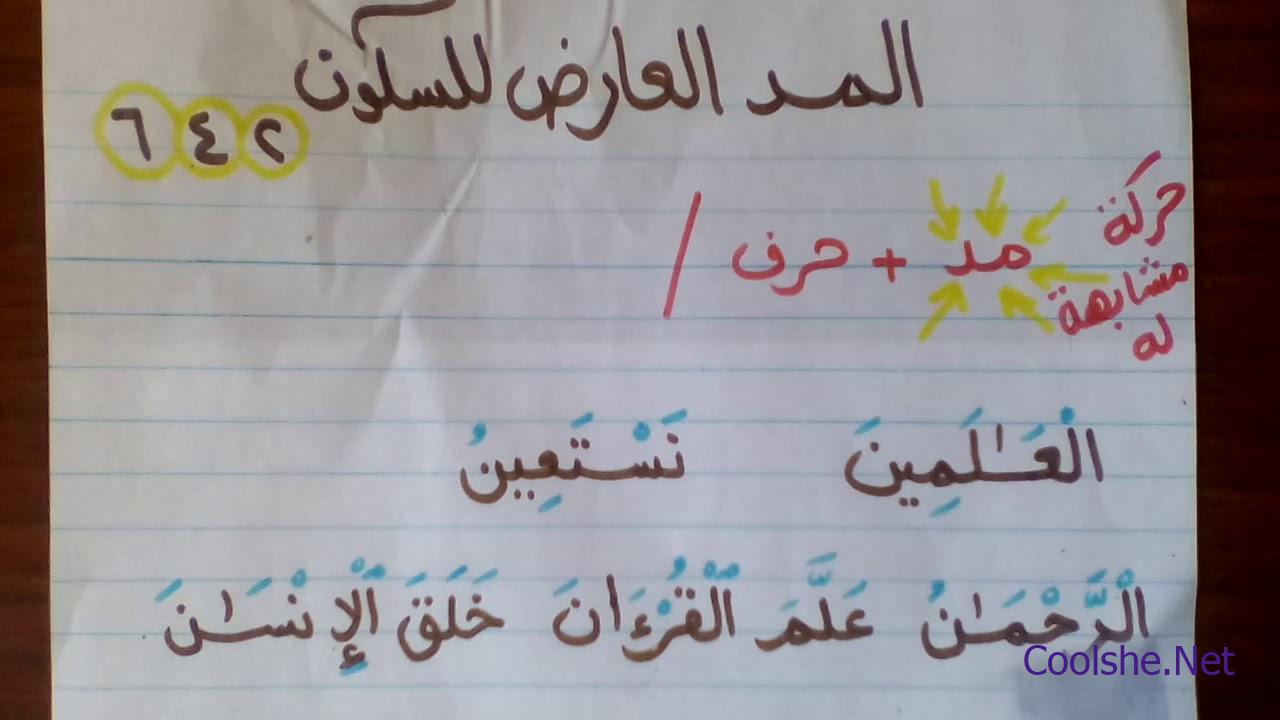 المد العارض للسكون
٢ ٤ ٦
حركة مشابهة له
مد + حرف /
الْعَـٰلَمِينَ نَسْتَعِينُ
الْرَّحْمَـٰنُ عَلَّمَ الْقُرْءَانَ خَلَقَ الْإِنْسَـٰنَ
Coolshe.Net